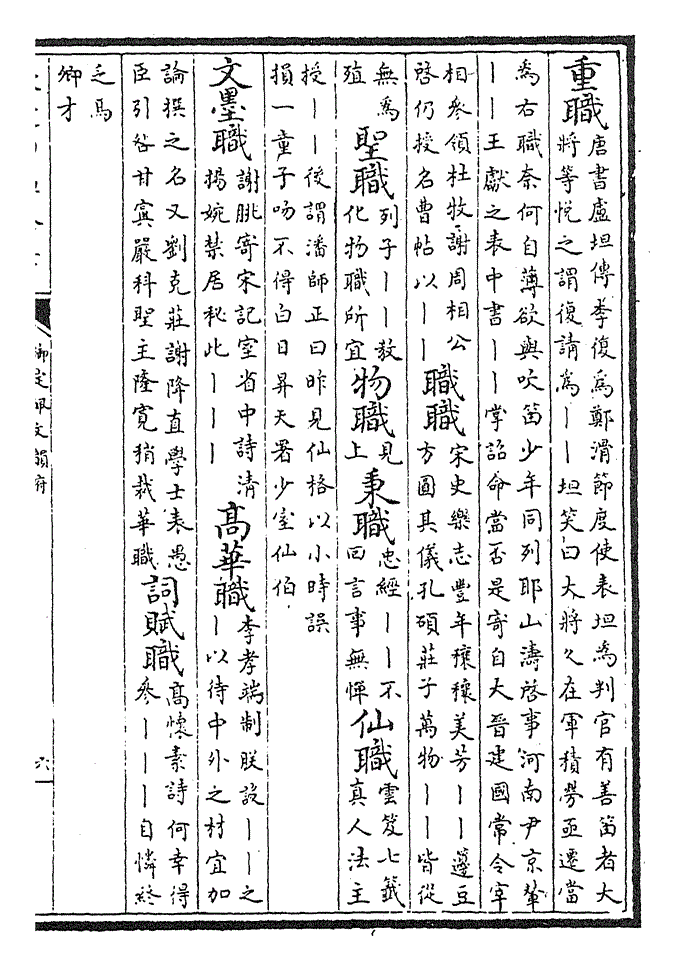 重職 唐書盧坦傳李復爲鄭滑節度使表坦爲判官有善笛者大
將等悅之謂復請爲丨丨坦笑曰大將久在軍積勞亟遷當
爲右職柰何自薄欲與吹笛少年同列耶山濤啓事河南尹京輦
丨丨王獻之表中書丨丨掌詔命當否是寄自大晉建國常令宰
相參領杜牧謝周相公
啓仍授名曹帖以丨丨
職職 宋史樂志豐年穰穰美芳丨丨籩豆
方圓其儀孔碩莊子萬物丨丨皆從
無爲
殖
聖職 列子丨丨教
化物職所宜
物職 見
上
秉職 忠經丨丨不
回言事無憚
仙職 雲笈七籤
真人法主
授丨丨後謂潘師正曰昨見仙格以小時誤
損一童子吻不得白日昇天署少室仙伯
文墨職 謝朓寄宋記室省中詩清
揚婉禁居秘此丨丨丨
高華職 李孝端制朕設丨丨之
丨以待中外之材宜加
論撰之名又劉克莊謝降直學士表愚
臣引咎甘寘嚴科聖主隆寬稍裁華職
詞賦職 高懷素詩何幸得
參丨丨丨自憐終
乏馬
卿才
御定佩文韻府
六